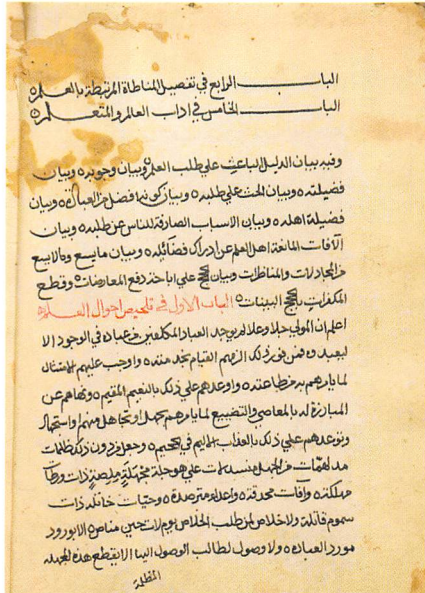 الباب الرابع في تفصيل المناظاة المرتبطة بالعلم
الباب الخامس في اداب العالم والمتعلم
وفيه بيان الدليل الباعث علي طلب العلم وبيان وجوبه وبيان
فضيلته وبيان الحث علي طلبه وبيان كونه افضل من العبادة وبيان
فضيلة اهله وبيان الاسباب الصارفة للناس عن طلبه وبيان
الآفات المانعة اهل العلم عن ادراك فضائله وبيان ما يسيغ وما لا يسيغ
من المجادلات والمناظرات وبيان حجج علي اباحة دفع المعارضات وقطع
المكفرات بحجج البينات الباب الاول في تلخيص احوال العلم
اعلم ان المولي جل وعلا لم يوجد العباد المكلفين من عباده في الوجود الا
ليعبدوه فمن فور ذلك الزمهم القيام بخدمته واوجب عليهم الامتثال
لما يامرهم به من طاعته واوعدهم علي ذلك بالنعيم المقيم ونهاهم عن
المبارزة له بالمعاصي والتضييع لما يامرهم جهلا وتجاهل منهم
وتوعدهم علي ذلك بالعذاب الاليم في الجحيم وجعل من دون ذلك ظلمات
مدلهمات من الجهل علي هوجلة
مهلكة وآفات محدقة واعداء مترصدة وحيات خاتلة ذات
سموم قاتلة ولا خلاص لمن طلب الخلاص يوم لات حين مناص الا بورود
مورد العبادة ولا وصول لطالب الوصول اليها الا بقطع هذه الجهلة
المظلمة